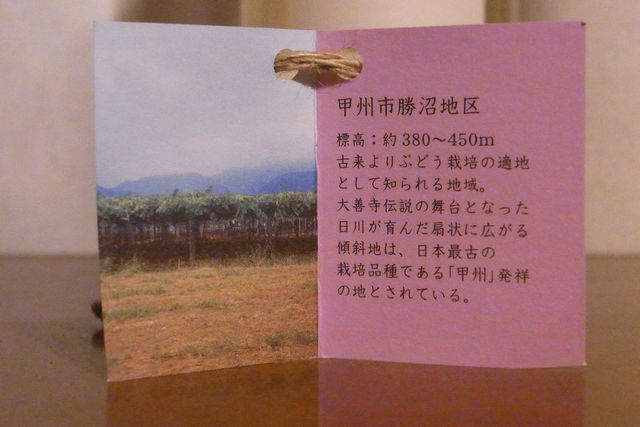 甲州市勝沼地区
標高：約380～450m
古来よりぶどう栽培の適地
として知られる地域。
大善寺伝説の舞台となった
日川が育んだ扇状に広がる
傾斜地は、日本最古の
栽培品種である「甲州」発祥
の地とされている。